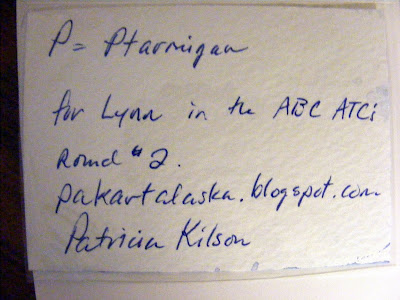 P = Ptarmigan
for Lynn in the ABC ATCs
Round #2.
pakartalaska.blogspot.com
Patricia Kilson